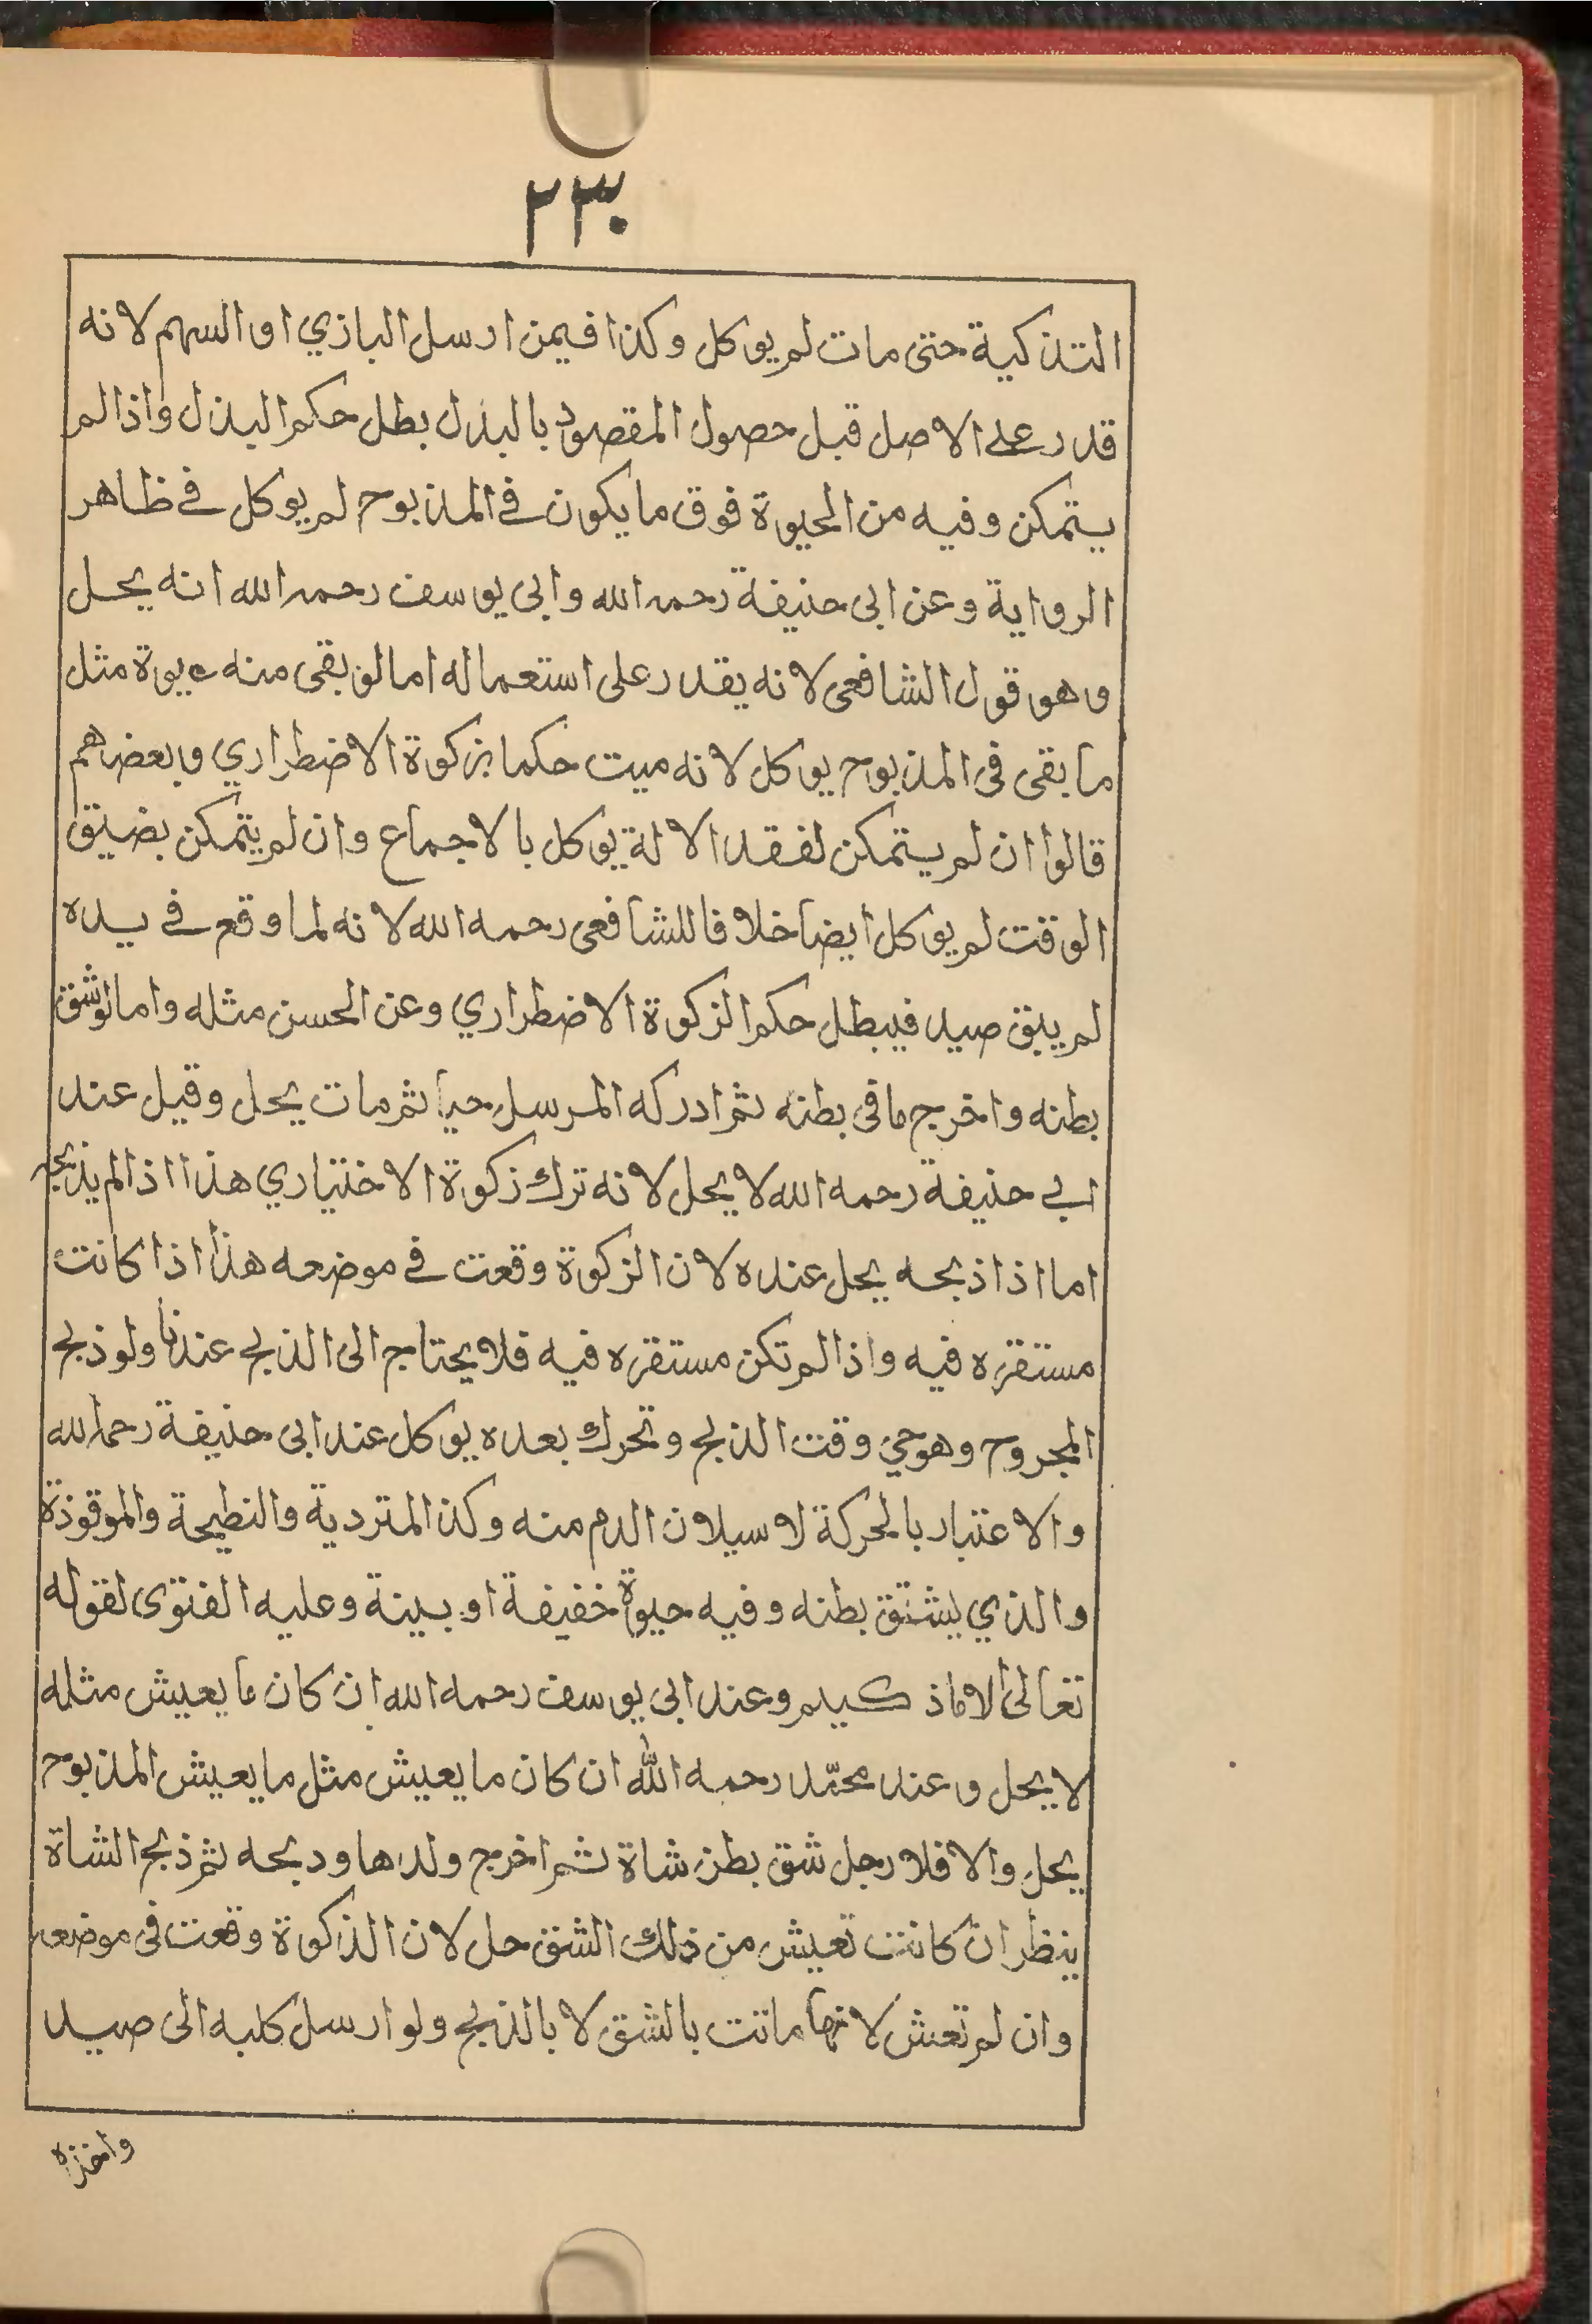 ٢٣٠
التذكية حتى مات لم يوكل وكذا فيمن ارسل البازي او السهم لانه
قدر على الاصل قبل حصول المقصود بالبذل بطل حكم البذل واذا لم
يتمكن وفيه من الحيوة فوق ما يكون في المذبوح لم يوكل في ظاهر
الرواية وعن ابى حنيفة رحمه الله وابى يوسف رحمه الله انه يحل
وهو قول الشافعى لانه يقدر على استعماله اما لو بقى منه حيوة مثل
ما بقى فى المذبوح يوكل لانه ميت حكما بزكوة الاضطراري وبعضهم
قالوا ان لم يتمكن لفقد الالة يوكل بالاجماع وان لم يتمكن بضيق
الوقت لم يوكل ايضا خلافا للشافعى رحمه الله لانه لما وقع في يده
لم يبق صيد فيبطل حكم الزكوة الاضطراري وعن الحسن مثله واما لو شق
بطنه واخرج ما فى بطنه ثم ادركه المرسل حيا ثم مات يحل وقيل عند
ابي حنيفة رحمه الله لا يحل لانه ترك زكوة الاختياري هذا اذا لم يذبحه
اما اذا ذبحه يحل عنده لان الزكوة وقعت في موضعه هذا اذا كانت
مستقره فيه واذا لم تكن مستقره فيه فلا يحتاج الى الذبح عندنا ولو ذبح
المجروح وهو حي وقت الذبح وتحرك بعده يوكل عند ابى حنيفة رحمه الله
والاعتبار بالحركة لا سيلان الدم منه وكذ المتردية والنطيحة والموقوذة
والذي يشتق بطنه وفيه حيوة خفيفة او بينة وعليه الفتوى لقوله
تعالى الا ماذكيتم وعند ابى يوسف رحمه الله ان كان ما يعيش مثله
لا يحل وعند محمّد رحمه الله ان كان ما يعيش مثل ما يعيش المذبوح
يحل والا فلا رجل شق بطن شاة ثم اخرج ولدها ودبحه ثم ذبح الشاة
ينظر ان كانت تعيش من ذلك الشق حل لان الذكوة وقعت فى موضعه
وان لم تعش لانها ماتت بالشق لا بالذبح ولو ارسل كلبه الى صيد
واخذه